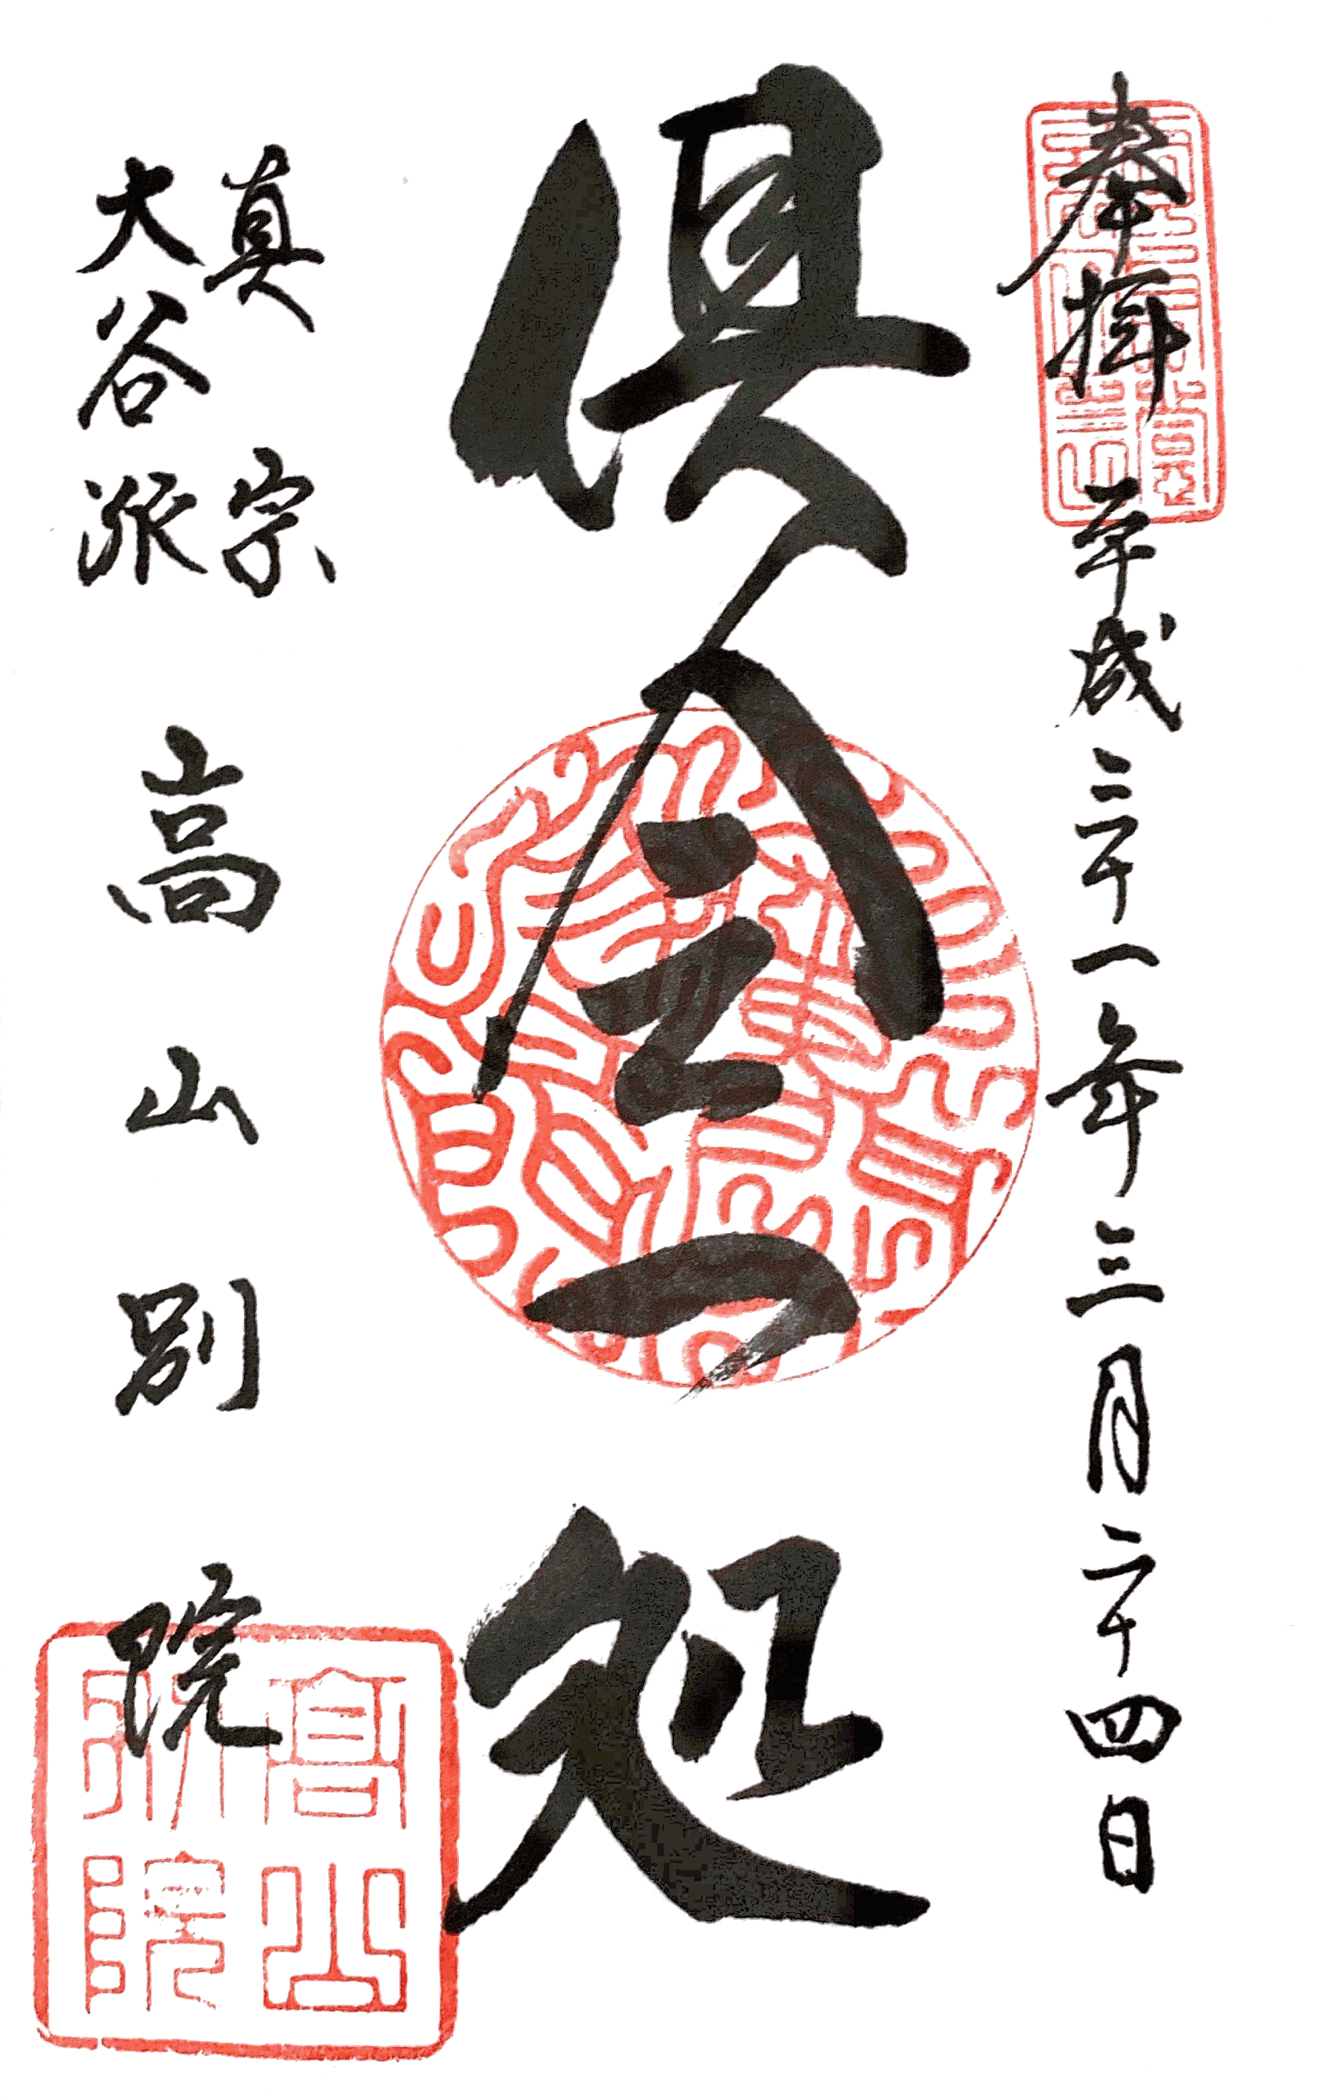 奉拝 平成三十一年三月二十四日
俱会一処
真宗
大谷派
高山別院
高山
別院